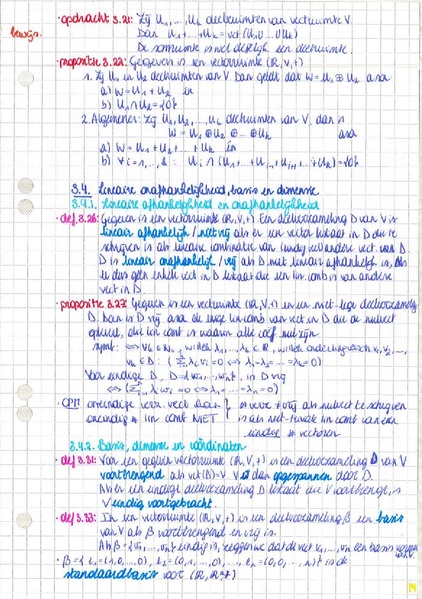 • opdracht 3.21: Zij U1,...,Uk deelruimten van vectorruimte V.
bewijs. Dan U1+...+Uk = vct(U1∪...∪Uk)
De somruimte is wel degelijk een deelruimte.
• propositie 3.24: Gegeven is een vectorruimte (ℝ,V,+)
1. Zij U1 en U2 deelruimten van V Dan geldt dat W = U1 ⊕ U2 asa
a) W = U1 + U2 én
b) U1 ∩ U2 = {0}
2. Algemener: Zij U1, U2,..., Uk deelruimten van V, dan is
W = U1 ⊕ U2 ⊕ ... ⊕ Uk asa
a) W = U1 + U2 + ... + Uk én
b) ∀i = 1,...,k: Ui ∩ (U1+...+Ui-1+Ui+1...+Uk) = {0}
3.4. Lineaire onafhankelijkheid, basis en dimensie
3.4.1. Lineaire afhankelijkheid en onafhankelijkheid
• def 3.26: Gegeven is een vectorruimte (ℝ,V,+) Een deelverzameling D van V is
lineair afhankelijk / niet vrij als er een vector bestaat in D die te
schrijven is als lineaire combinatie van eindig veel andere vect. van D.
D is lineair onafhankelijk / vrij als D niet lineair afhankelijk is, als
er dus geen enkele vect in D bestaat die een lin. comb is van andere
vect in D.
• propositie 3.27: Gegeven is een vectorruimte (ℝ,V,+) en een niet-lege deelverzameling
D. Dan is D vrij asa de enige lin comb van vect in D die de nulvect
oplevert, die lin comb is waarin alle coëf nul zijn.
Voor eindige D, D = {v1,...,vn}, is D vrij
⇔ (Σ λi vi = 0 ⇔ λ1 = ... = λn = 0)
• OPM: oneindige verz. vect
oneindig lin comb NIET
3.4.2. Basis, dimensie en coördinaten
• def 3.31: Voor een gegeven vectorruimte (ℝ,V,+) is een deelverzameling D van V
voortbrengend als vct(D) = V V is dan opgespannen door D.
Als er een eindige deelverzameling D bestaat die V voortbrengt, is
V eindig voortgebracht.
• def 3.33: In een vectorruimte (ℝ,V,+) is een deelverzameling β een basis
van V als β voortbrengend en vrij is.
Als β = {v1,...,vn} eindig is, zeggen we dat de vect v1,...,vn een basis vormen
• β = {e1 = (1,0,...,0), e2 = (0,1,...,0),..., en = (0,0,...,1)} is de
standaardbasis voor (ℝ,ℝⁿ,+)